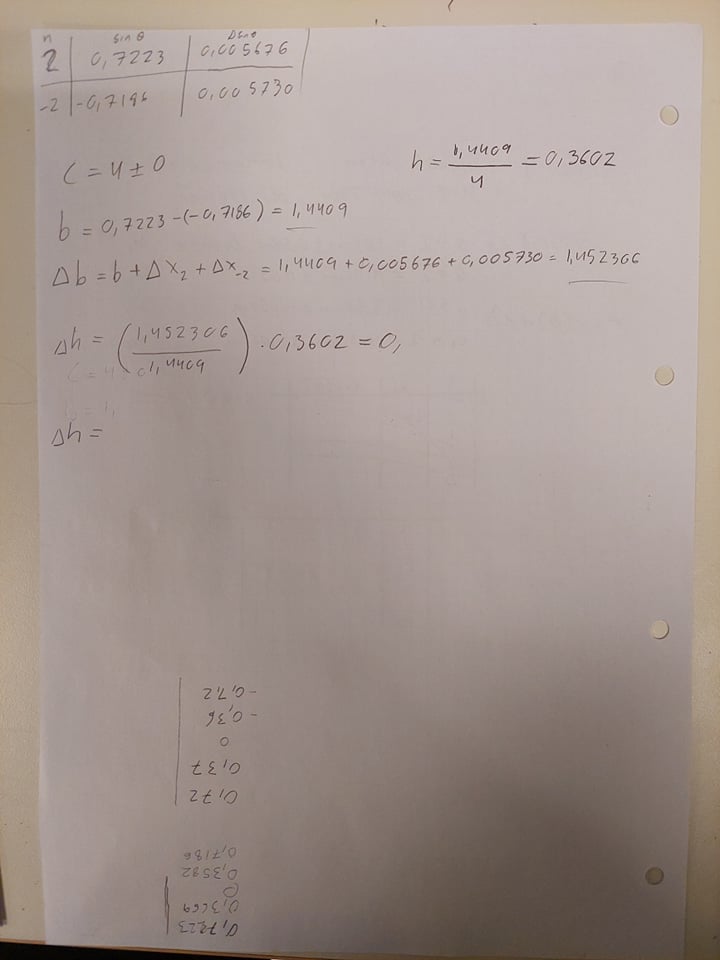 n sin θ Δsin θ
2 0,7223 0,005676
-2 -0,7186 0,005730
C = 4 ± 0
h = 1,4409 / 4 = 0,3602
b = 0,7223 - (-0,7186) = 1,4409
Δb = b + Δx₂ + Δx₋₂ = 1,4409 + 0,005676 + 0,005730 = 1,452306
Δh = (1,452306 / 1,4409) · 0,3602 = 0,
Δh =
0,72
0,37
0
-0,36
-0,72
0,7223
0,3669
0
0,3582
0,7186